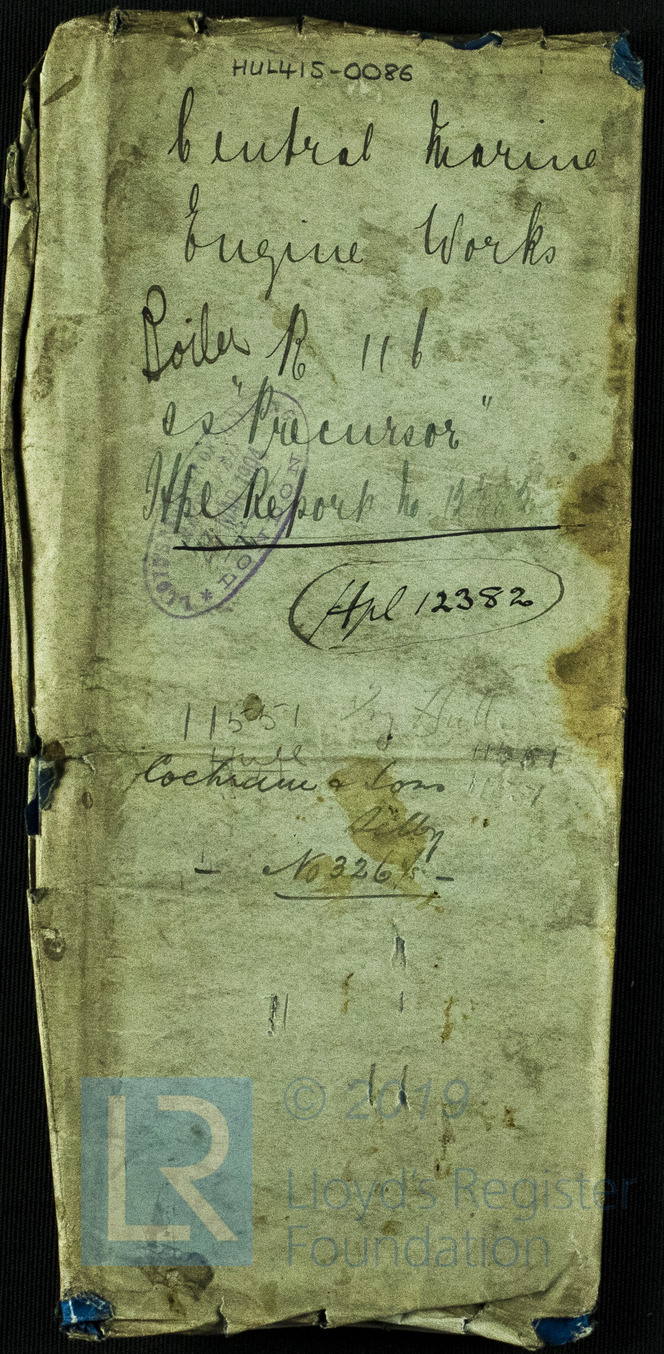 HUL415-0086
Central Marine
Engine Works
Boiler R 116
ss "Precursor"
Hpl Report No
Hpl 12382
LONDON
11551
Hull
11551
Cochrane & Sons
Selby
- No 326 -
LR
© 2019
Lloyd's Register
Foundation